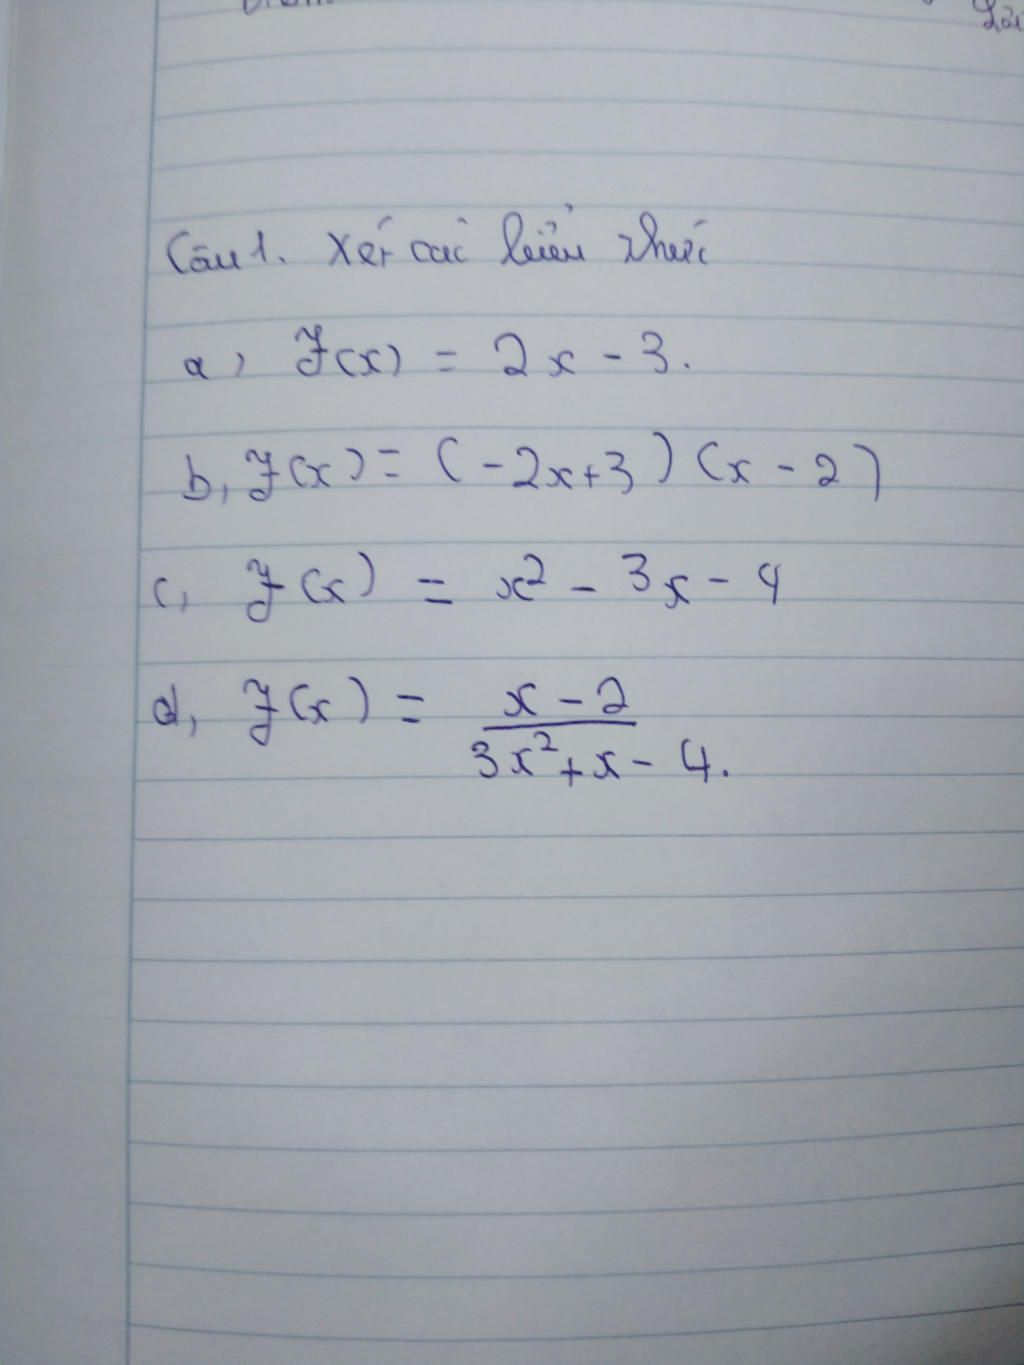 Câu 1. Xét các biểu thức
a, f(x) = 2x - 3.
b, f(x) = (-2x+3)(x-2)
c, f(x) = x² - 3x - 4
d, f(x) = x - 2
3x² + x - 4.